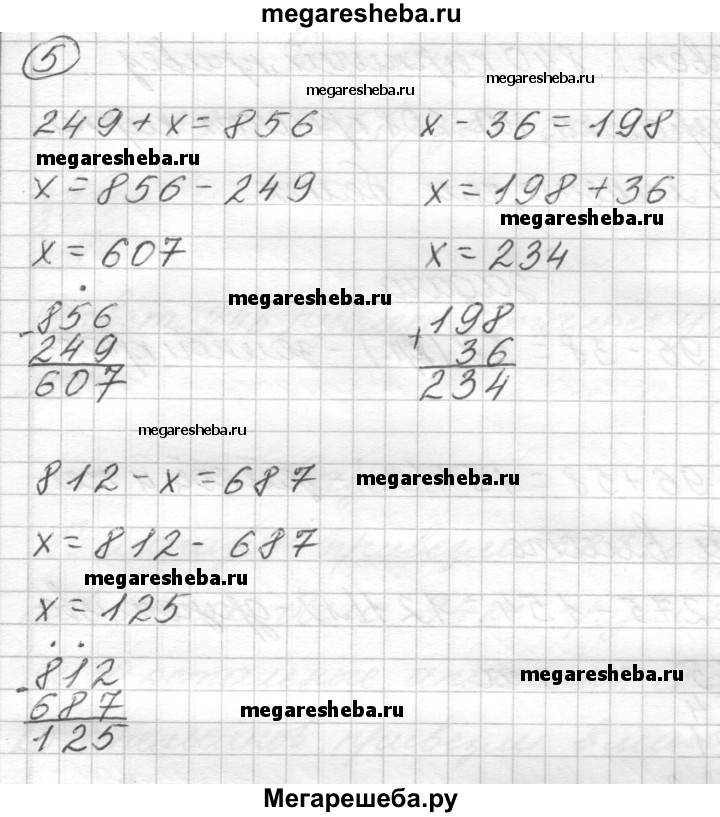 megaresheba.ru
5
megaresheba.ru
megaresheba.ru
249 + x = 856
x - 36 = 198
megaresheba.ru
x = 856 - 249
x = 198 + 36
megaresheba.ru
x = 607
x = 234
megaresheba.ru
- 856
249
607
+ 198
36
234
megaresheba.ru
812 - x = 687
megaresheba.ru
x = 812 - 687
megaresheba.ru
x = 125
- 812
687
125
megaresheba.ru
megaresheba.ru
Мегарешеба.ру